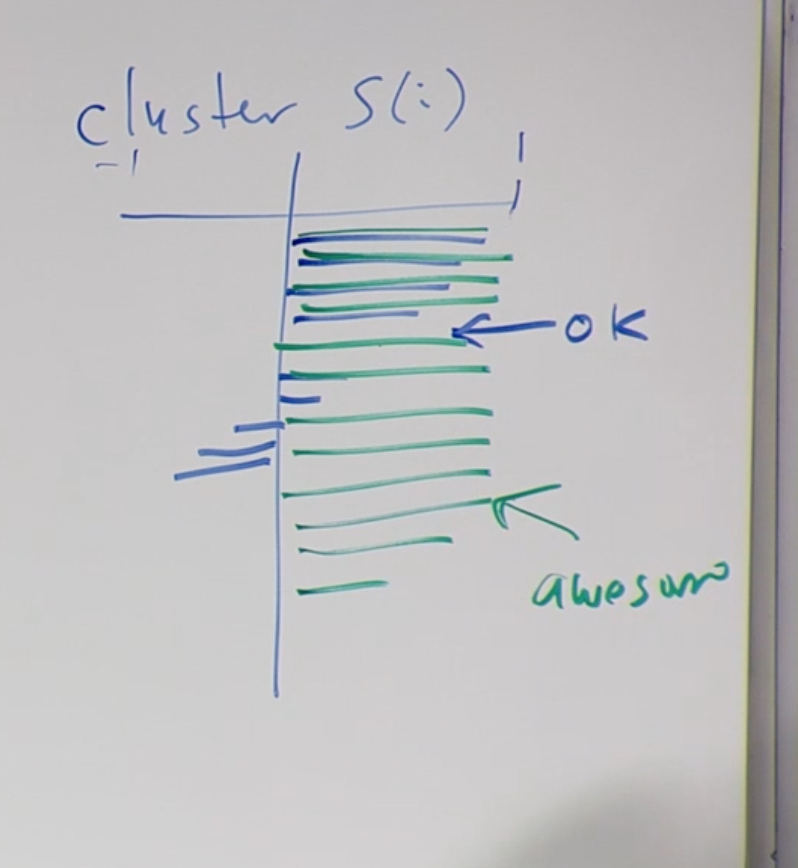 cluster S(i)
-1 1
OK
awesome